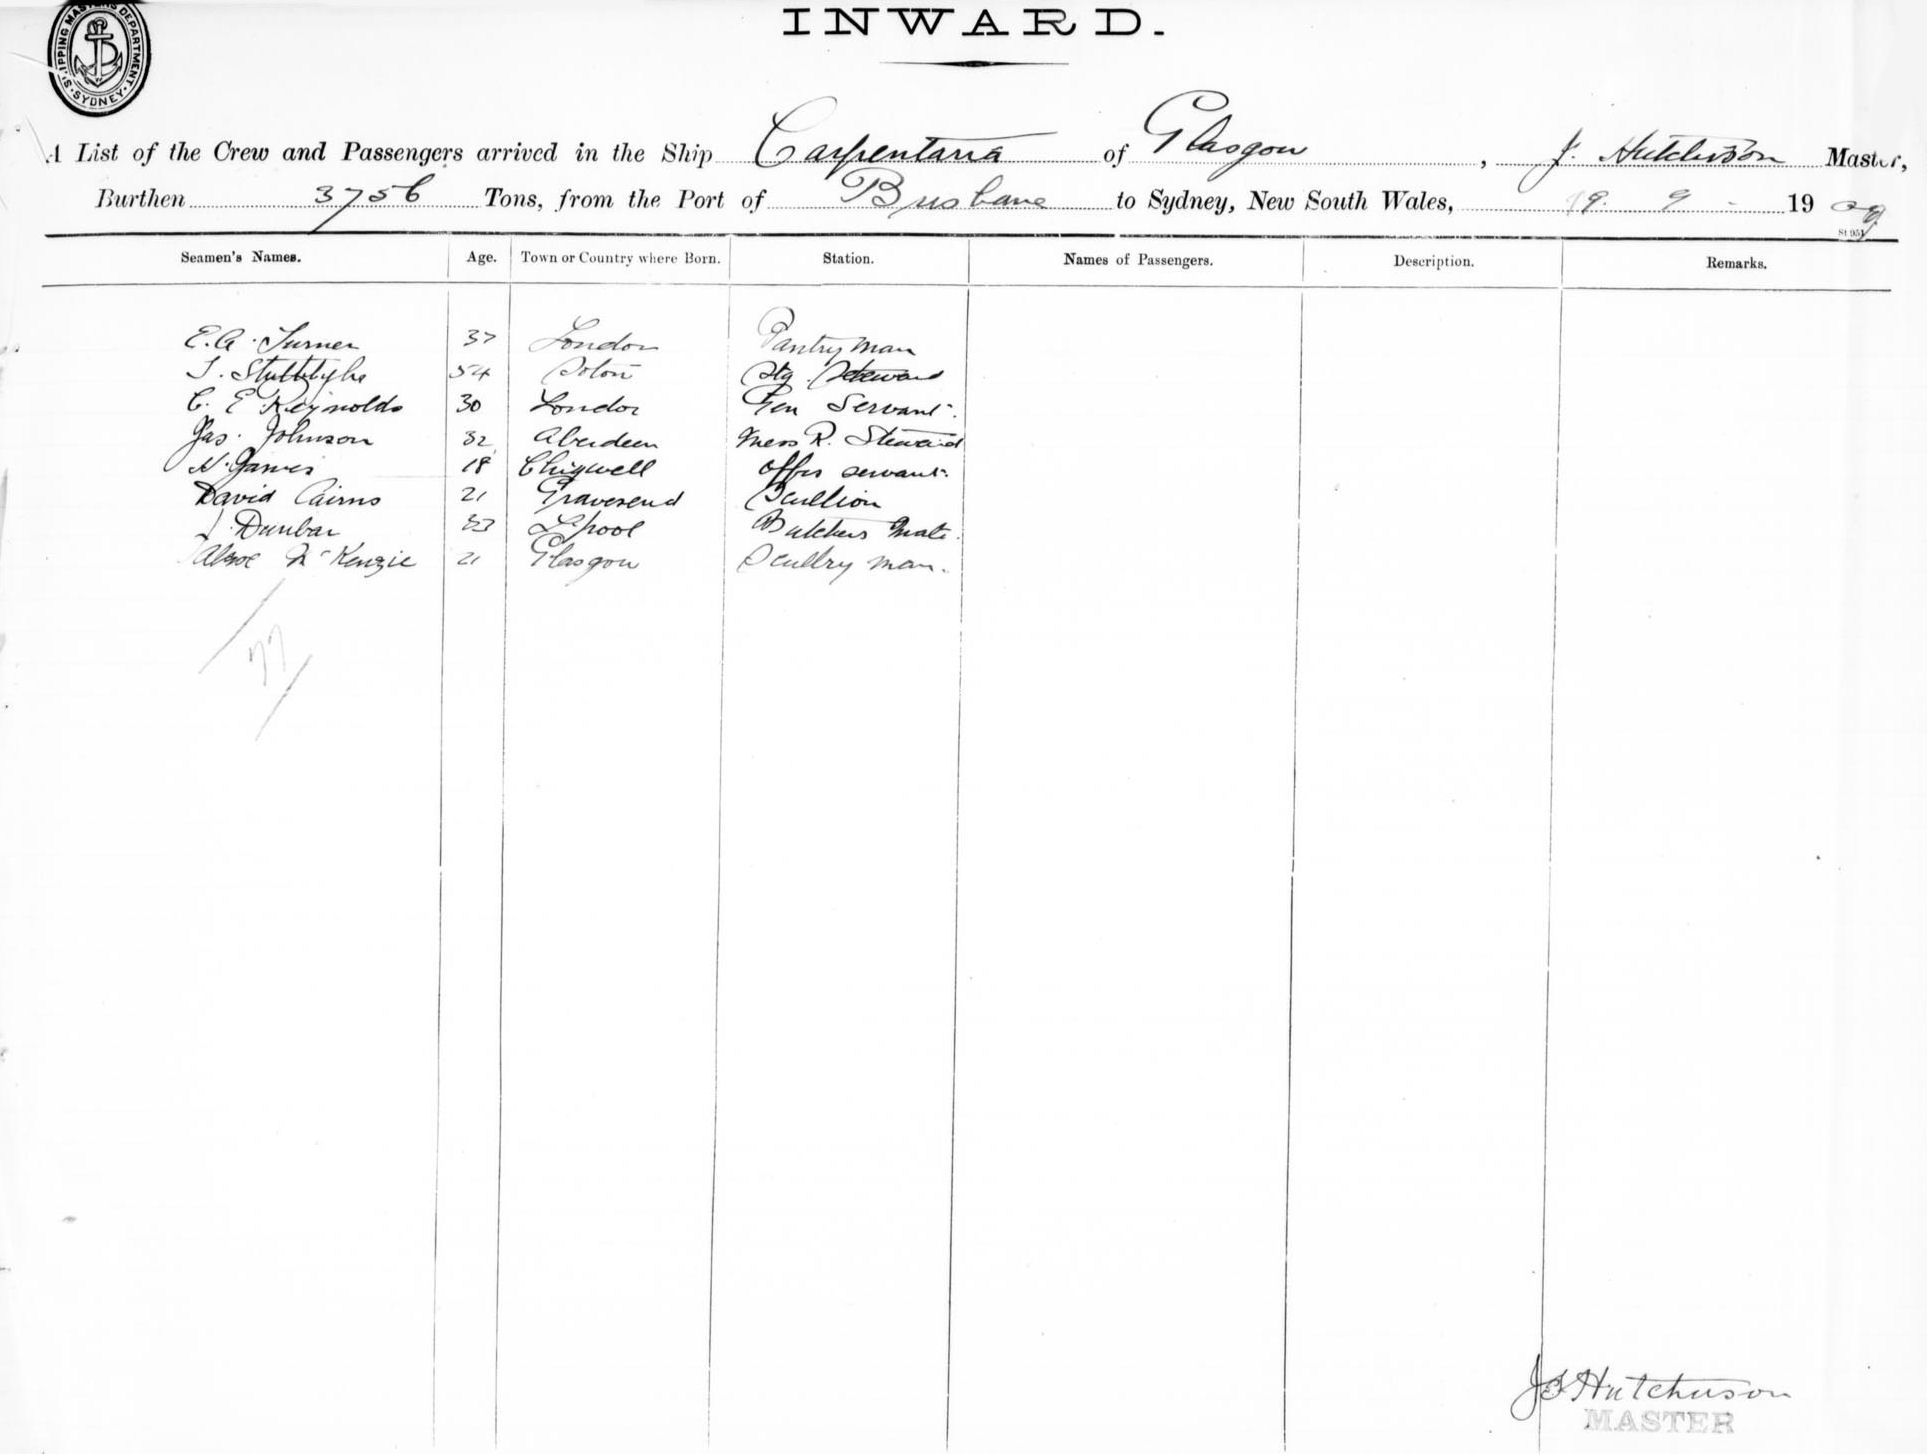 INWARD.
SHIPPING MASTERS DEPARTMENT. SYDNEY.
A List of the Crew and Passengers arrived in the Ship Carpentaria of Glasgow, J. Hutchison Master,
Burthen 3756 Tons, from the Port of Brisbane to Sydney, New South Wales, 19. 9 - 1909
St 951
Seamen's Names. Age. Town or Country where Born. Station. Names of Passengers. Description. Remarks.
E. A. Turner 37 London Pantry Man
54 Soton Stg. Steward
C. E Reynolds 30 London Gen Servant.
Jas. Johnson 32 Aberdeen Mess R. Steward
N. James 18 Chigwell Offrs servant.
David Cairns 21 Gravesend Scullion
J. Dunbar 33 L'pool Butchers Mate.
McKenzie 21 Glasgow Scullry man.
77
J Hutchison
MASTER